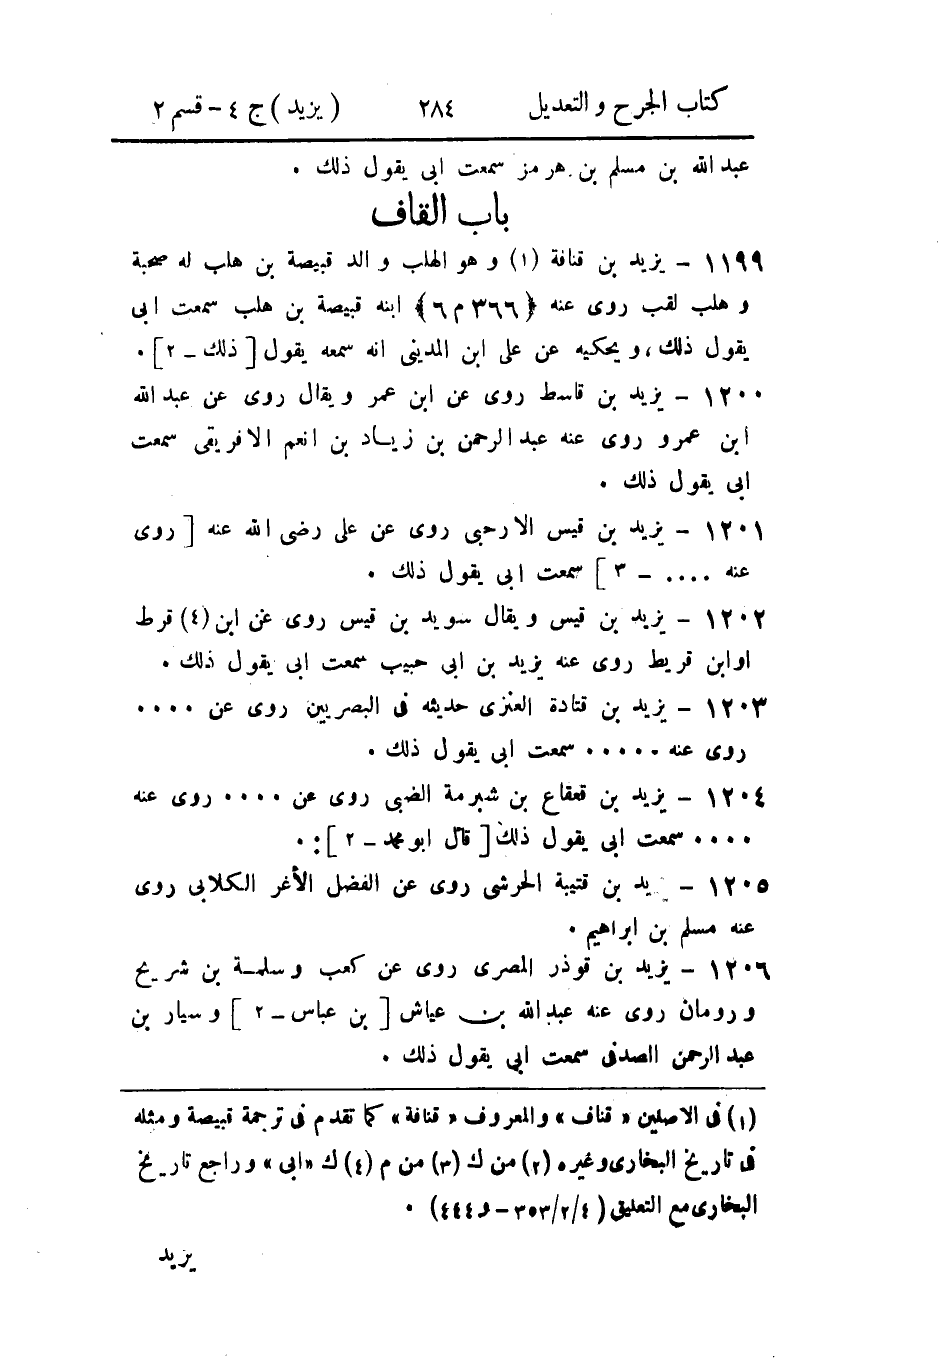 كتاب الجرح و التعديل ٢٨٤ ( يزيد ) ج ٤ - قسم ٢
عبد الله بن مسلم بن هرمز سمعت ابى يقول ذلك .
باب القاف
١١٩٩ - يزيد بن قنافة (١) و هو الهلب و الد قبيصة بن هلب له صحبة
و هلب لقب روى عنه ﴿٣٦٦ م ٦﴾ ابنه قبيصة بن هلب سمعت ابى
يقول ذلك ، و يحكيه عن على ابن المدينى انه سمعه يقول [ ذلك - ٢ ] .
١٢٠٠ - يزيد بن قاسط روى عن ابن عمر و يقال روى عن عبد الله
ابن عمرو روى عنه عبد الرحمن بن زياد بن انعم الافريقى سمعت
ابى يقول ذلك .
١٢٠١ - يزيد بن قيس الارحبى روى عن على رضى الله عنه [ روى
عنه .... - ٣ ] سمعت ابى يقول ذلك .
١٢٠٢ - يزيد بن قيس و يقال سويد بن قيس روى عن ابن (٤) قرط
او ابن قريط روى عنه يزيد بن ابى حبيب سمعت ابى يقول ذلك .
١٢٠٣ - يزيد بن قتادة العنزى حديثه فى البصريين روى عن ....
روى عنه ..... سمعت ابى يقول ذلك .
١٢٠٤ - يزيد بن قعقاع بن شبرمة الضبى روى عن .... روى عنه
.... سمعت ابى يقول ذلك [ قال ابو محمد - ٢ ] : .
١٢٠٥ - يزيد بن قتيبة الحرشى روى عن الفضل الأغر الكلابى روى
عنه مسلم بن ابراهيم .
١٢٠٦ - يزيد بن قوذر المصرى روى عن كعب و سلمة بن شريح
و رومان روى عنه عبد الله بن عياش [ بن عباس - ٢ ] و سيار بن
عبد الرحمن الصدفى سمعت ابى يقول ذلك .
(١) فى الاصلين « قناف » والمعروف « قنافة » كما تقدم فى ترجمة قبيصة و مثله
فى تاريخ البخارى وغيره (٢) من ك (٣) من م (٤) ك « ابى » و راجع تاريخ
البخارى مع التعليق ( ٣٥٣/٢/٤ - و ٤٤٤ ) .
يزيد